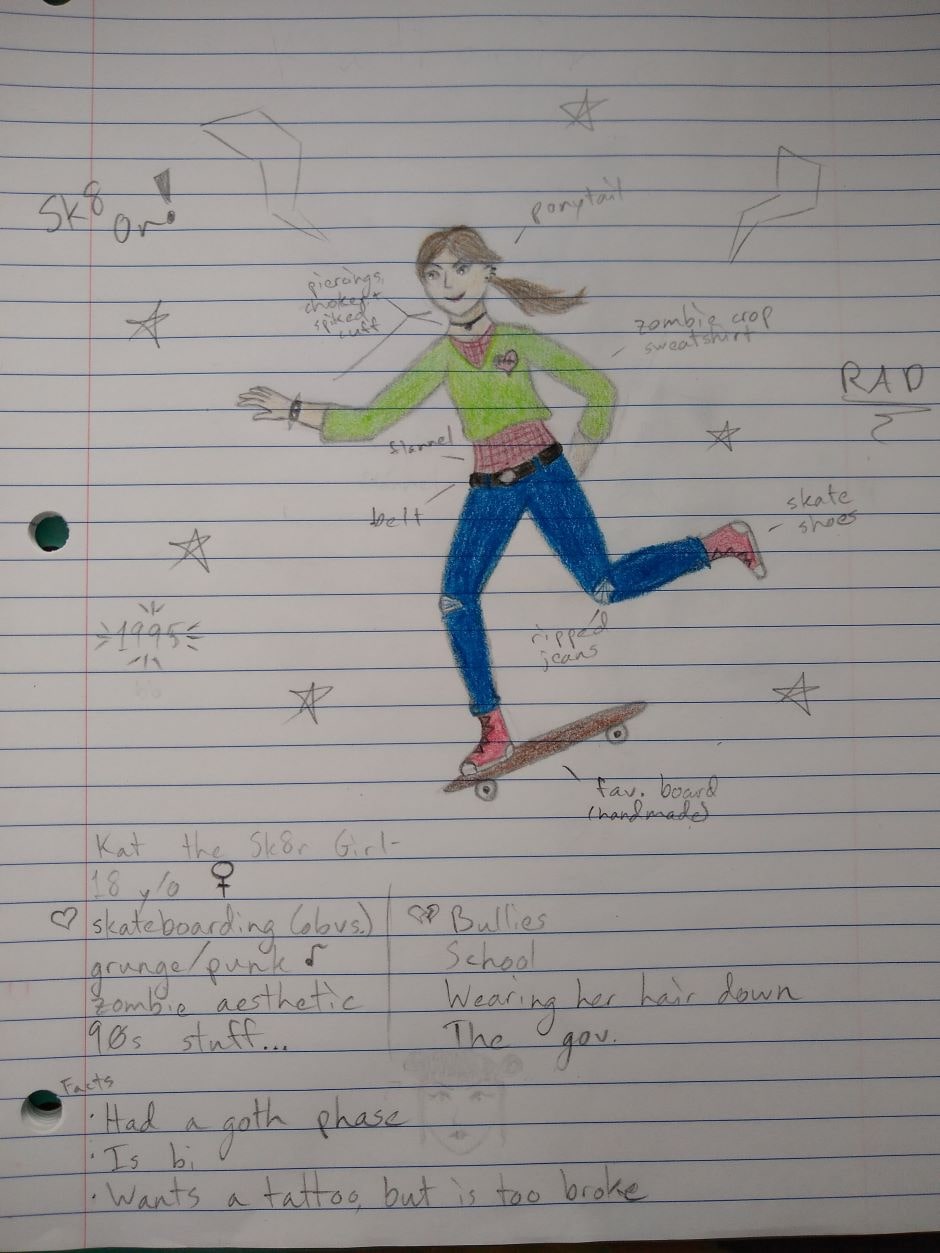 Sk8
Or!
ponytail
piercings,
choker +
spiked
cuff
zombie crop
sweatshirt
RAD
flannel
belt
skate
shoes
1995
ripped
jeans
fav. board
(handmade)
Kat the Sk8r Girl-
18 y/o ♀
♡ skateboarding (obvs.)
grunge/punk ♪
zombie aesthetic
90s stuff...
Bullies
School
Wearing her hair down
The gov.
Facts
· Had a goth phase
· Is bi
· Wants a tattoo, but is too broke